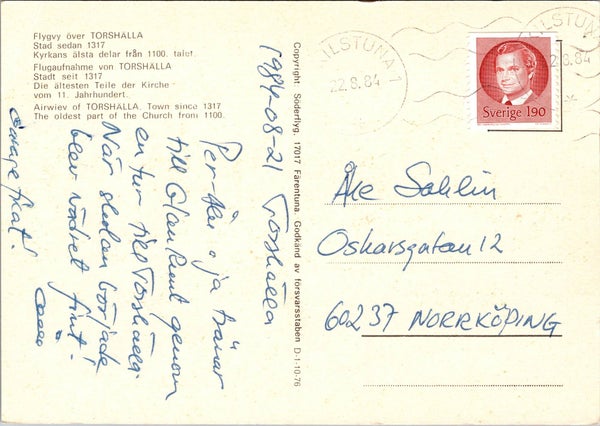 Flygvy över TORSHÄLLA
Stad sedan 1317
Kyrkans älsta delar från 1100. talet.
Flugaufnahme von TORSHÄLLA
Stadt seit 1317
Die ältesten Teile der Kirche
vom 11. Jahrhundert.
Airwiev of TORSHÄLLA. Town since 1317
The oldest part of the Church from 1100.
1984-08-21 Torshälla
Per-Åke o ja tränar
till Ölandrunt genom
en tur till Torshälla.
När skolan började
blev vädret fint!
Copyright Söderflyg, 17017 Färentuna. Godkänd av försvarsstaben D-1-10-76
ILSTUNA 1
22.8.84
ILSTUNA
2.8.84
Sverige 190
Åke Sahlin
Oskarsgatan 12
60237 NORRKÖPING